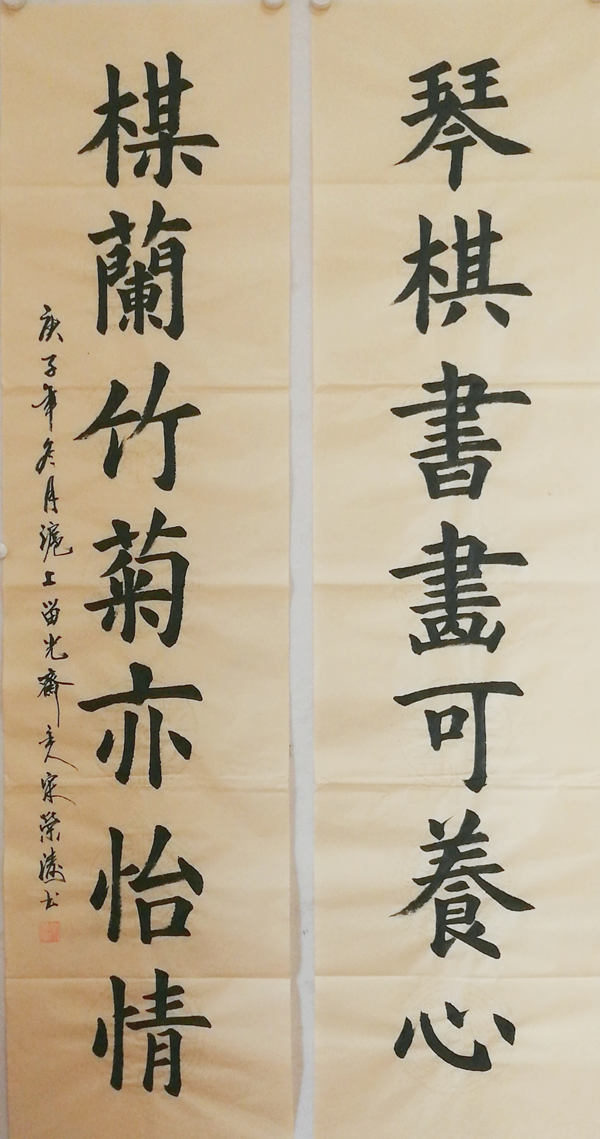 琴棋書畫可養心
楳蘭竹菊亦怡情
庚子年冬月滬上留光齋主人宋榮濤书